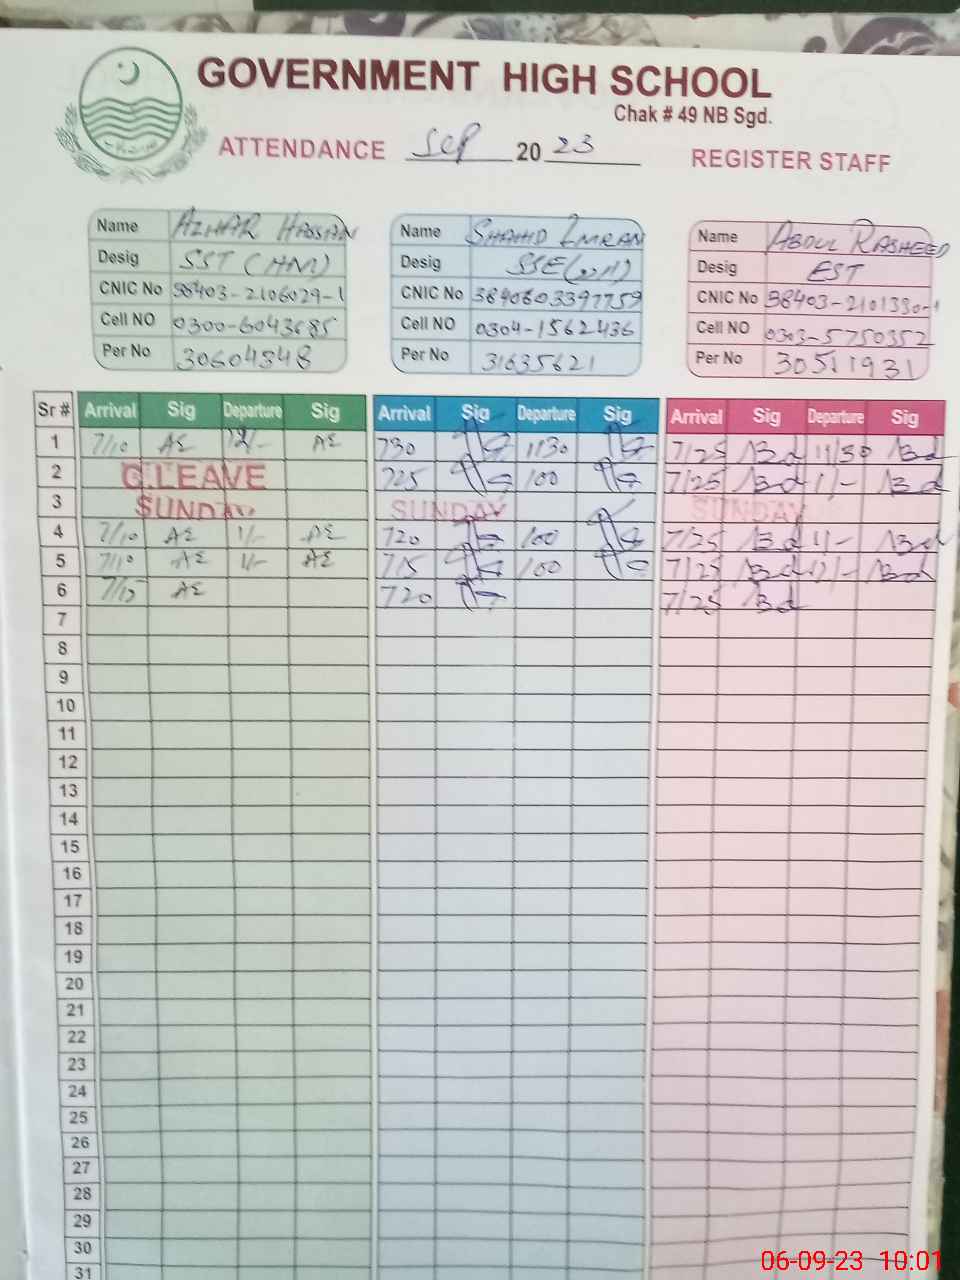 GOVERNMENT HIGH SCHOOL
Chak # 49 NB Sgd.
ATTENDANCE Sep 2023 REGISTER STAFF
Name AZHAR HASSAN
Desig SST (HM)
CNIC No 38403-2106029-1
Cell NO 0300-6043685
Per No 30604848
Name SHAHID IMRAN
Desig SSE
CNIC No 3840603397759
Cell NO 0304-1562436
Per No 31635621
Name ABDUL RASHEED
Desig EST
CNIC No 38403-2101330-1
Cell NO 0303-5750352
Per No 30511931
Sr # Arrival Sig Departure Sig Arrival Sig Departure Sig Arrival Sig Departure Sig
1 7/10 AΣ 12/- AΣ 730 1130 7/25 11/30
2 C.LEAVE 725 100 7/25 1/-
3 SUNDAY SUNDAY SUNDAY
4 7/10 AΣ 1/- AΣ 720 100 7/25 1/-
5 7/10 AΣ 1/- AΣ 715 100 7/25
6 7/15 AΣ 720 7/25
7
8
9
10
11
12
13
14
15
16
17
18
19
20
21
22
23
24
25
26
27
28
29
30
31
06-09-23 10:01